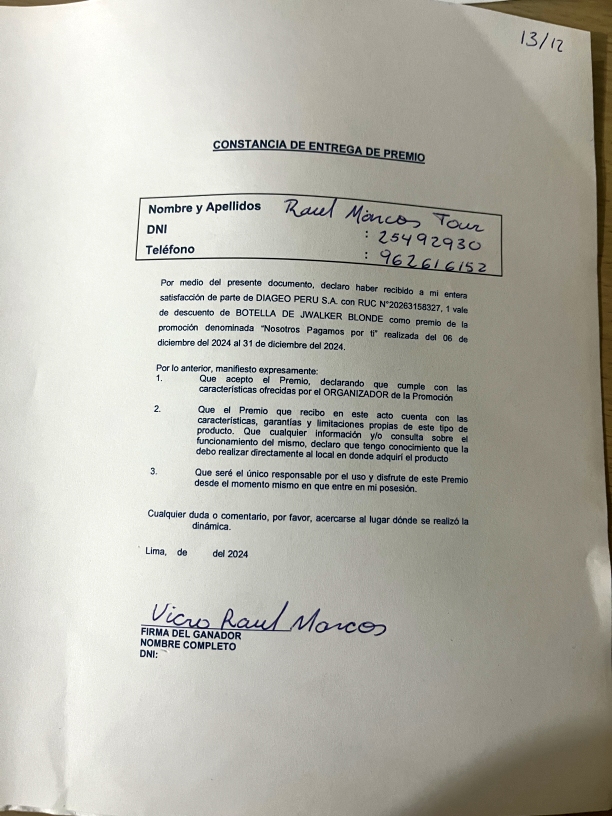 13/12
CONSTANCIA DE ENTREGA DE PREMIO
Nombre y Apellidos Raul Marcos Tour
DNI : 25492930
Teléfono : 962616152
Por medio del presente documento, declaro haber recibido a mi entera
satisfacción de parte de DIAGEO PERU S.A. con RUC N°20263158327, 1 vale
de descuento de BOTELLA DE JWALKER BLONDE como premio de la
promoción denominada "Nosotros Pagamos por ti" realizada del 06 de
diciembre del 2024 al 31 de diciembre del 2024.
Por lo anterior, manifiesto expresamente:
1. Que acepto el Premio, declarando que cumple con las
características ofrecidas por el ORGANIZADOR de la Promoción
2. Que el Premio que recibo en este acto cuenta con las
características, garantías y limitaciones propias de este tipo de
producto. Que cualquier información y/o consulta sobre el
funcionamiento del mismo, declaro que tengo conocimiento que la
debo realizar directamente al local en donde adquirí el producto
3. Que seré el único responsable por el uso y disfrute de este Premio
desde el momento mismo en que entre en mi posesión.
Cualquier duda o comentario, por favor, acercarse al lugar dónde se realizó la
dinámica.
Lima, de del 2024
Raul Marcos
FIRMA DEL GANADOR
NOMBRE COMPLETO
DNI: